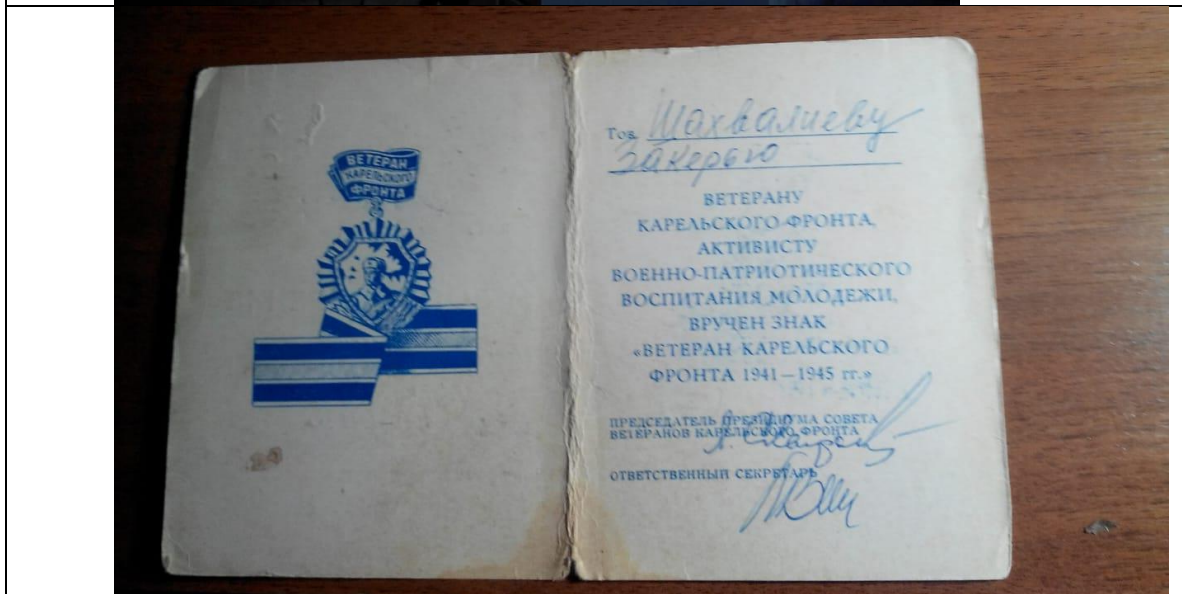 ВЕТЕРАН
КАРЕЛЬСКОГО
ФРОНТА
Тов. Шахвалиеву
Закерью
ВЕТЕРАНУ
КАРЕЛЬСКОГО ФРОНТА,
АКТИВИСТУ
ВОЕННО-ПАТРИОТИЧЕСКОГО
ВОСПИТАНИЯ МОЛОДЕЖИ,
ВРУЧЕН ЗНАК
«ВЕТЕРАН КАРЕЛЬСКОГО
ФРОНТА 1941—1945 гг.»
ПРЕДСЕДАТЕЛЬ ПРЕЗИДИУМА СОВЕТА
ВЕТЕРАНОВ КАРЕЛЬСКОГО ФРОНТА
ОТВЕТСТВЕННЫЙ СЕКРЕТАРЬ